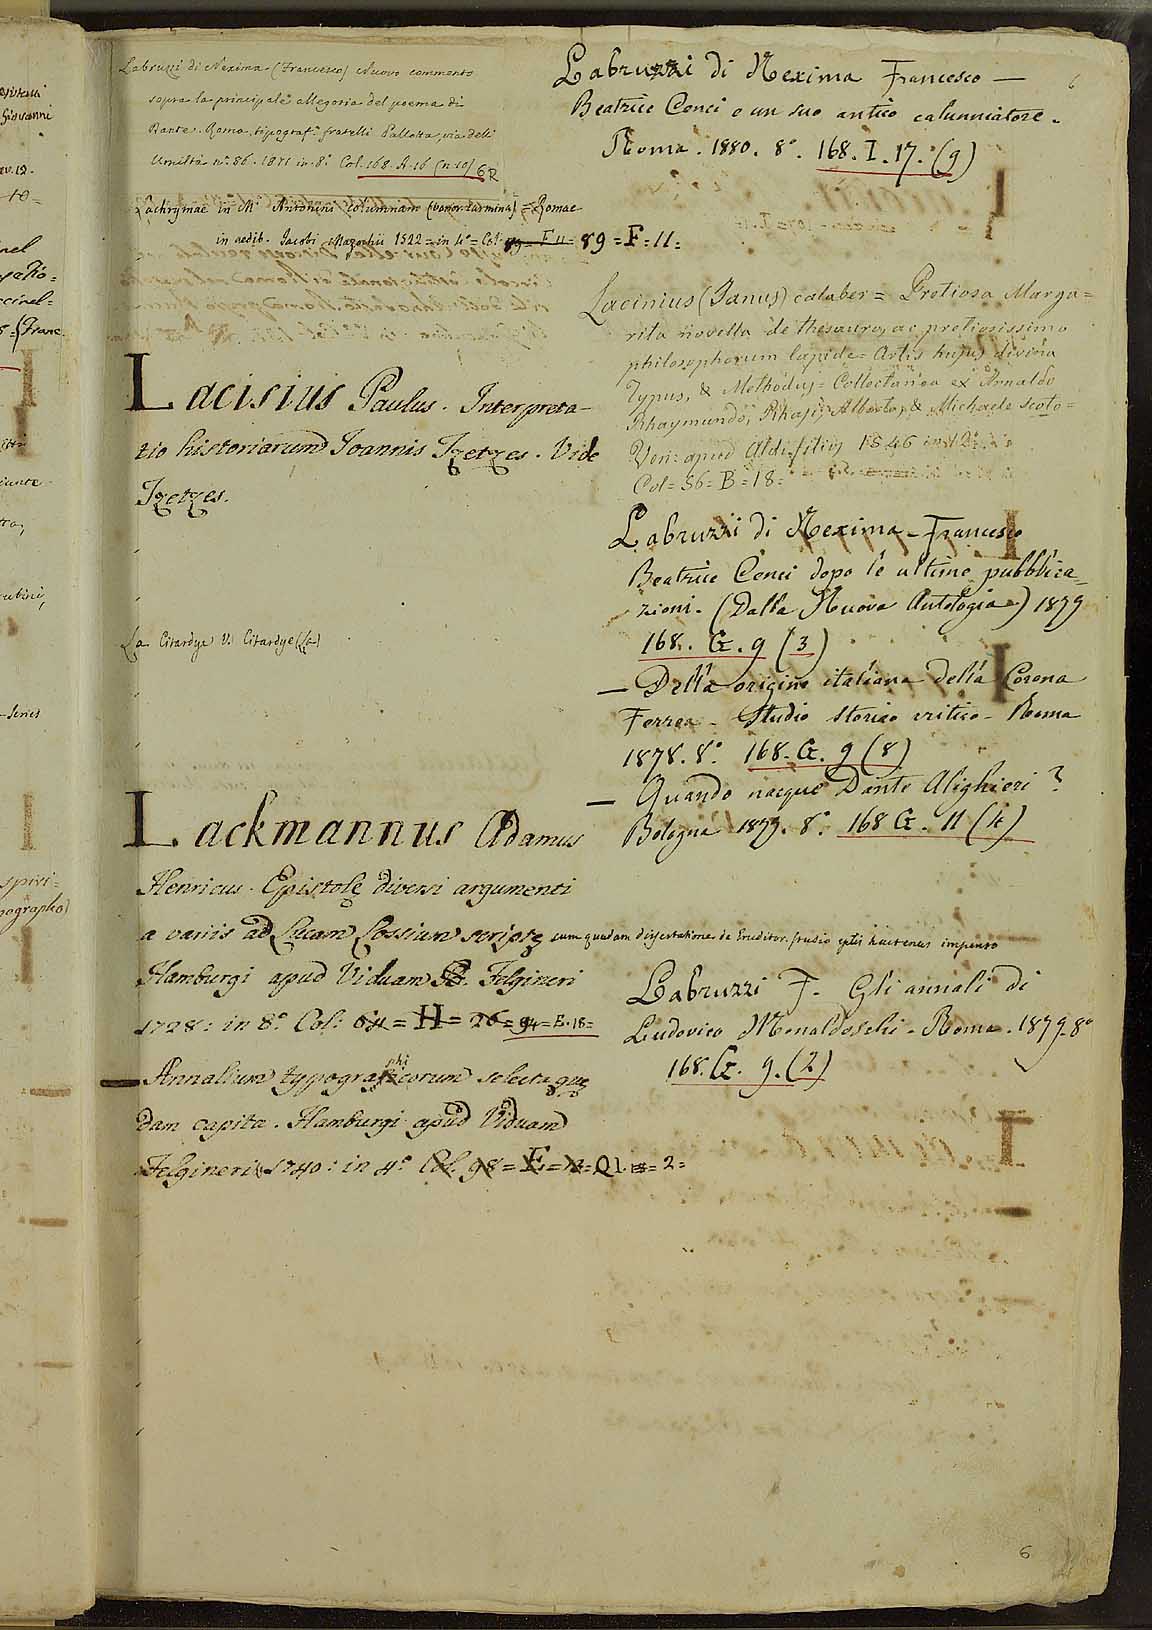 Labruzzi di Nexima (Francesco) Nuovo commento
sopra la principale allegoria del poema di
Dante. Roma, tipograf. fratelli Pallotta, via dell'
Umiltà nº 86. 1871 in 8º Col. 168. A. 16 (n. 10) 62
Lachrymae in M. Antonini columnam (bonor. carmina) = Romae
in aedib. Jacobi Mazochii 1522 = in 4º = Col. 89 = F. 11 = 89 = F = 11 =
Lacisius Paulus. Interpreta-
tio historiarum Joannis Tzetzes. Vide
Tzetzes.
La Citardye V. Citardye (La)
Lackmannus Adamus
Henricus. Epistolę diversi argumenti
a variis ad Lucam Lossium scriptę cum quadam dissertatione de Eruditor. studio eptis hactenus impenso
Hamburgi apud Viduam B. Felgineri
1728: in 8º Col: 64 = H = 26 = 94 = E. 18 =
— Annalium typographicorum selecta quę
dam capita. Hamburgi apud Viduam
Felgineri 1740: in 4º Col. 98 = E = 13 = Q1. 13 = 2 =
Labruzzi di Nexima Francesco —
6
Beatrice Cenci e un suo antico calunniatore.
Roma. 1880. 8º. 168. I. 17. (9)
Lacinius (Janus) calaber = Pretiosa Marga=
rita novella de thesauro, ac pretiosissimo
philosophorum lapide = Artis hujus divina
Typus, & Methodus = Collectanea ex Arnaldo
Rhaymundo, Rhasi, Alberto, & Michaele Scoto =
Ven: apud Aldi filios 1546 in 12
Col = 56 = B = 18 =
Labruzzi di Nexima - Francesco
Beatrice Cenci dopo le ultime pubblica-
zioni. (Dalla Nuova Antologia) 1879
168. G. 9 (3)
— Dell'a origine italiana dell'a Corona
Ferrea - Studio storico critico - Roma
1878. 8º 168. G. 9 (8)
— Quando nacque Dante Alighieri?
Bologna 1879. 8º. 168 G. 11 (4)
Labruzzi F. Gli annali di
Ludovico Monaldeschi. Roma. 1879. 8º
168. G. 9. (2)
6